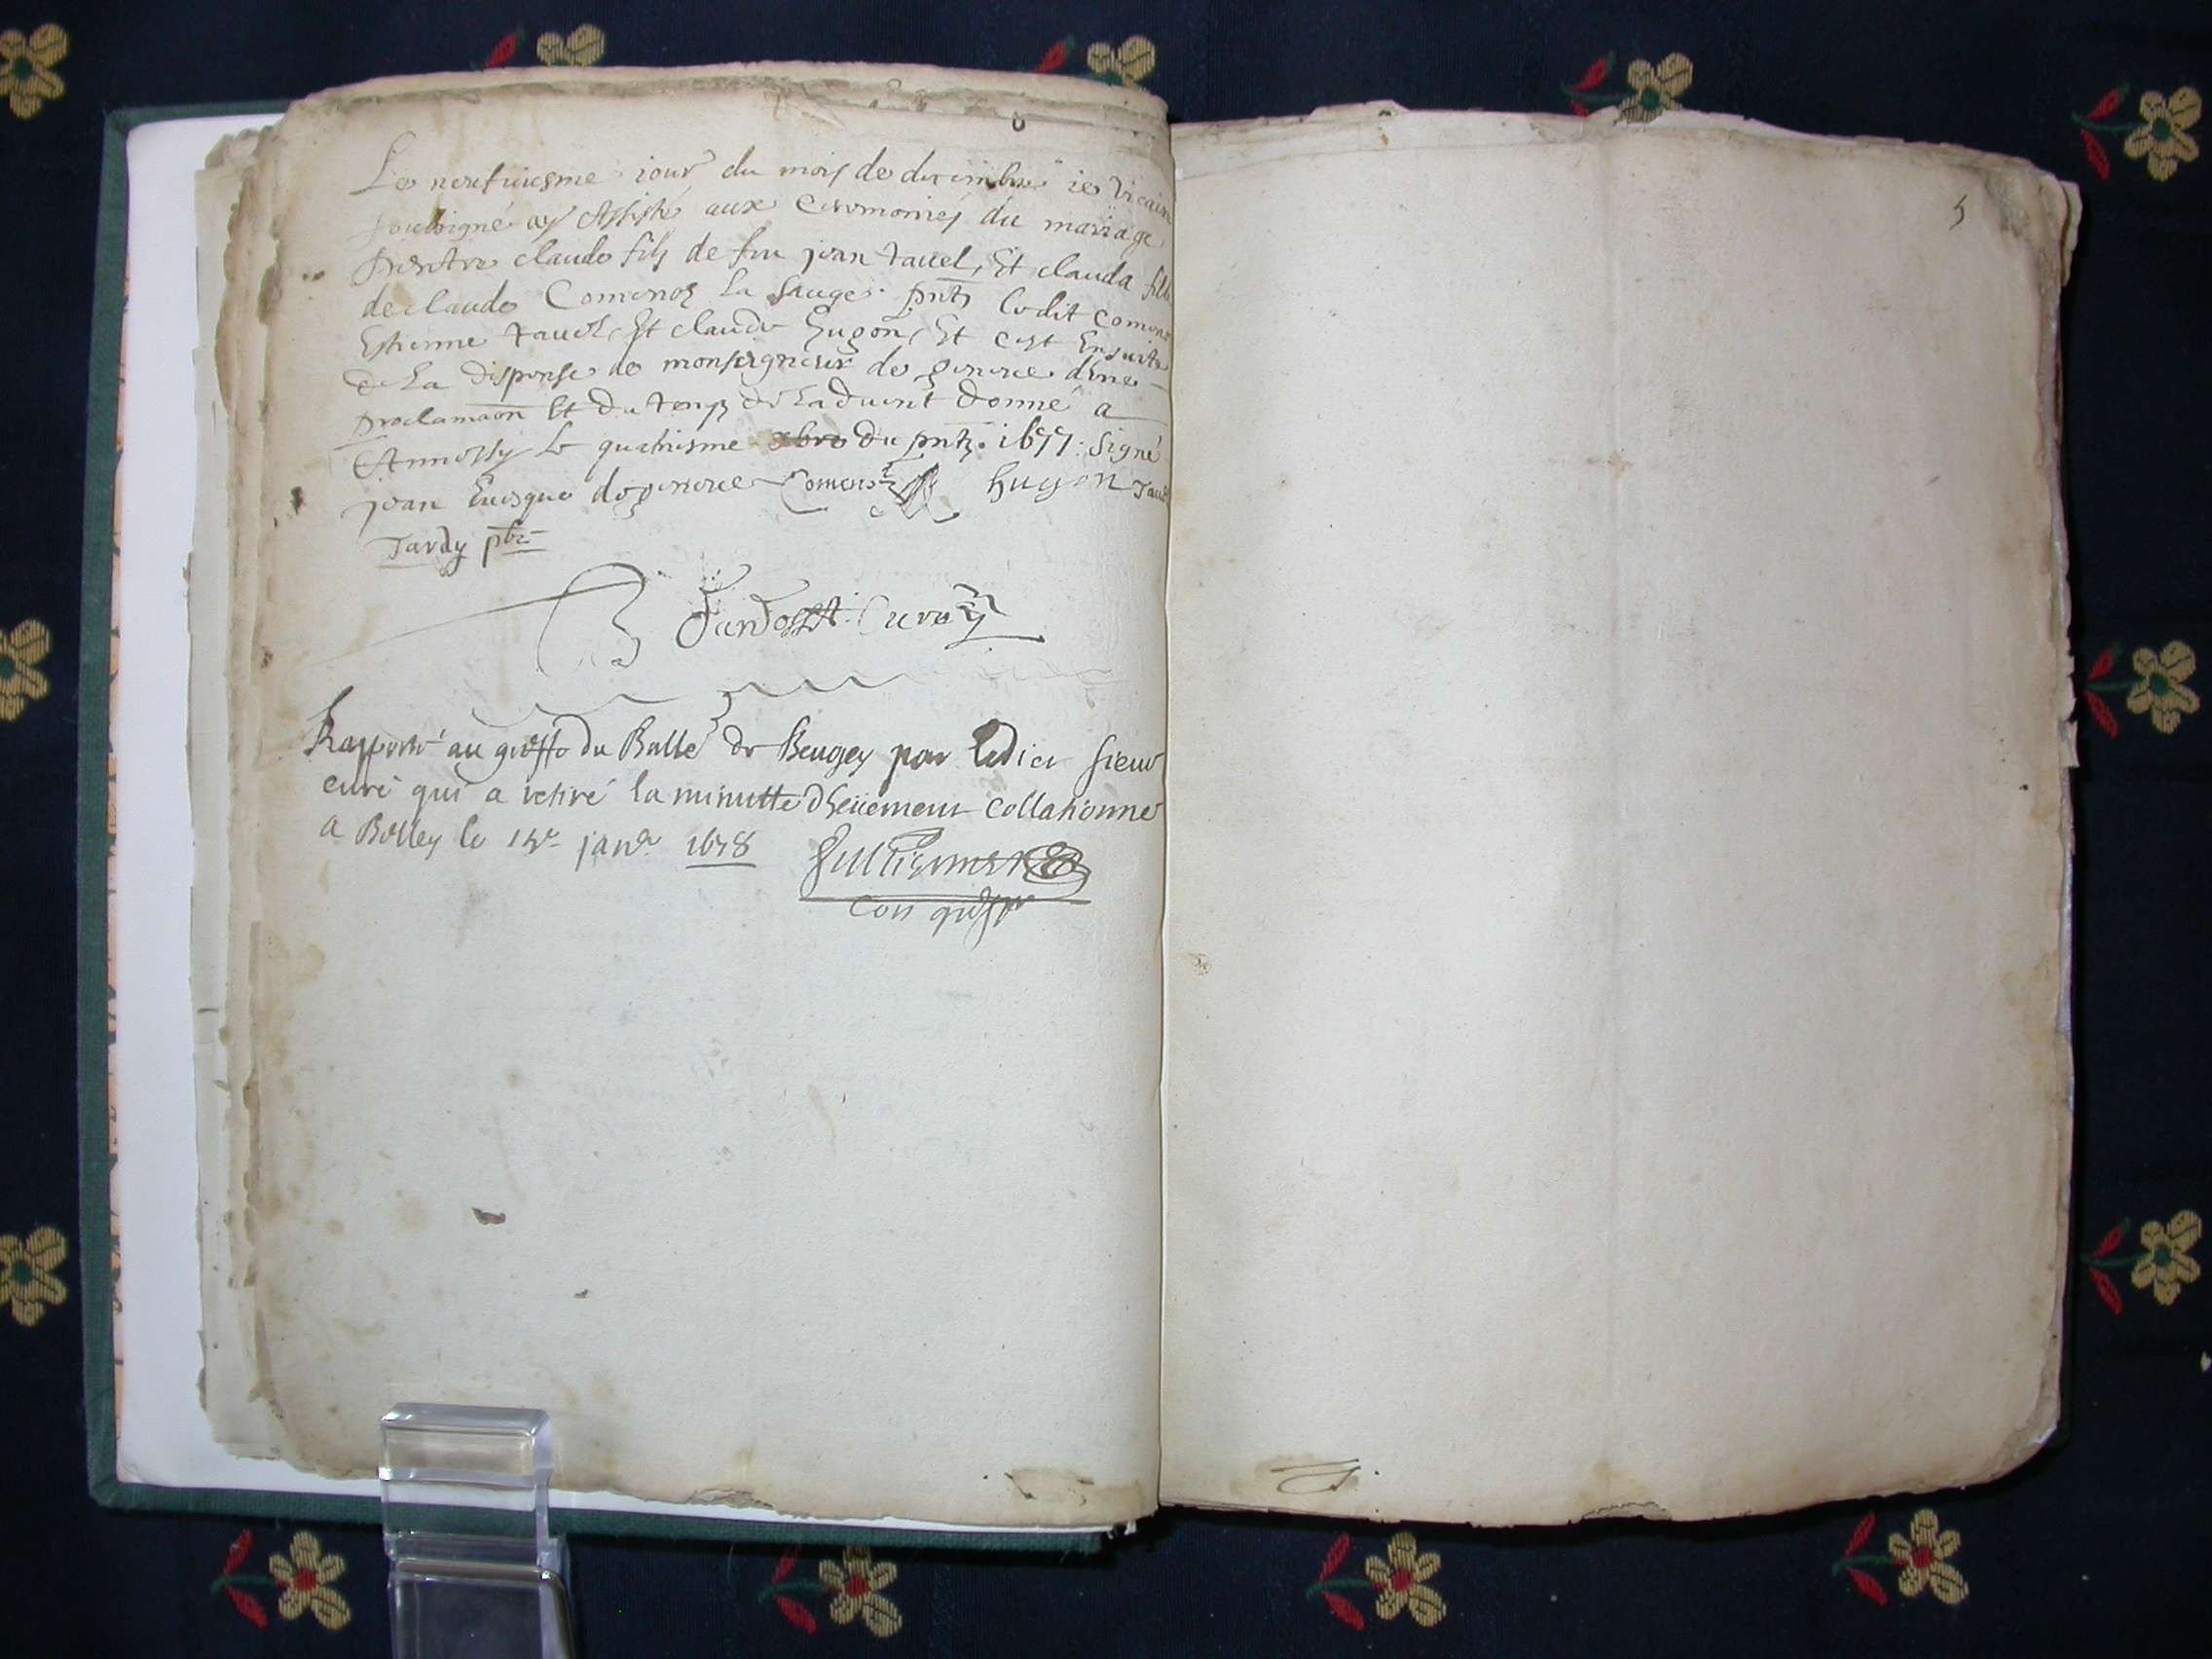 Le neufuiesme iour du mois de decembre ie Vicaire
soubsigné ay Assisté aux Ceremonies du mariage
d'entre claude fils de feu jean tavel, Et clauda fille
de claude Comenoz La sauge. pntz ledit Comenoz
Estienne tavel, Et claude hugon, Et c'est Ensuite
de La dispense de monseigneur de geneve d'une
proclamaon Et du temps de Laduent donné a
Annessy le quatriesme xbre du pntz. 1677: Signé
jean Euesque de geneve Comenoz hugon Tavel
Tardy pbre
Curé
5
Rapporté au greffe du Balle de Beugey par ledict sieur
curé qui a retiré la minutte dheuement collationné
a Belley le janr. 1678